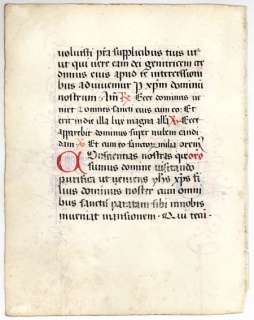 voluisti pr̄a supplicibus tuis ut
ut qui uere eam dei genitricem cre
dimus eius apud te intercessioni
bus adiuuemur P xp̄m dominū
nostrum Am̄ Ecce dominus ui
niet ⁊ omnes sancti eius cum eo Et
erit in die illa lux magna all'a Ecce
apparebit dominus super nubem candi
dam Et cum eo sanctorum milia
Conscientias nostras qs oro
sumus domine uisitando
purifica ut ueniens yhs xps fi
lius dominus noster cum omni
bus sanctis paratam sibi in nobis
inueniat mansionem Qui tecū